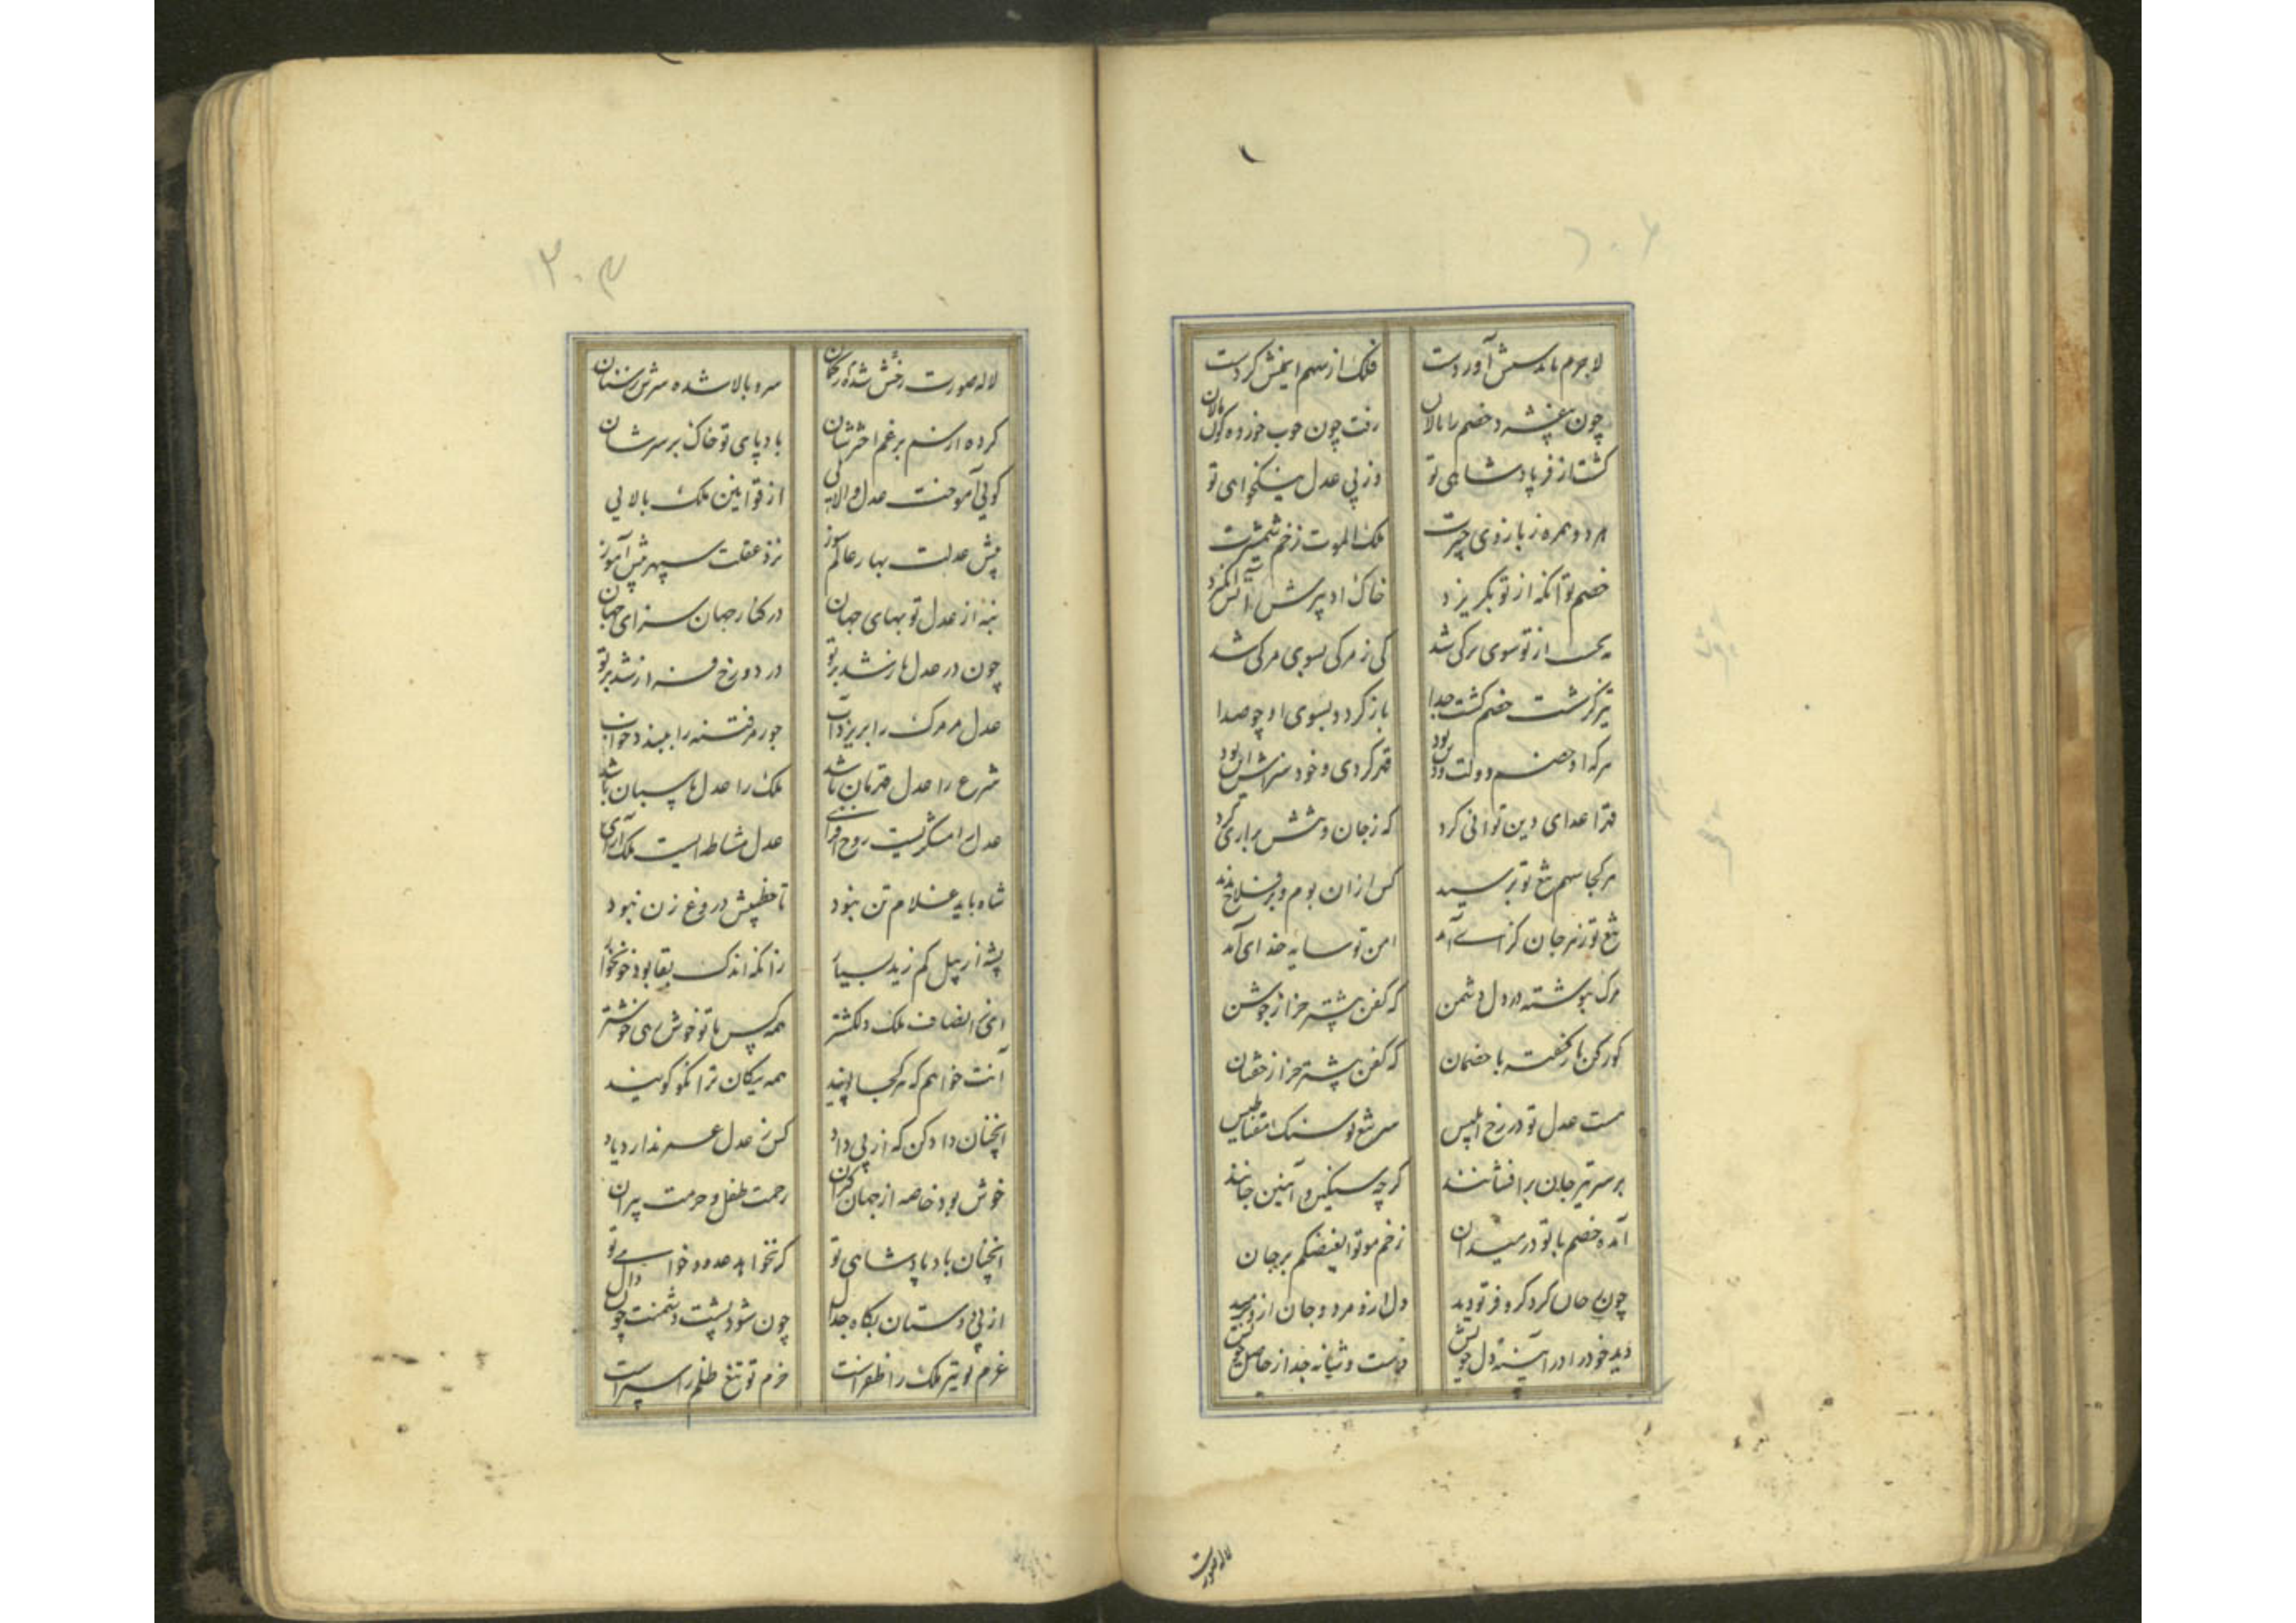 لاجرم باندسش آوردست فلک از سهم ایمنش کردست
چون خصم را مالان رفت چون خوب خورده کوی
کشت از فر پادشاهی تو وز پی عدل نیکخواهی تو
مرد و همره ز بازوی چیرت ملک الموت زخم شمشیرت
خصم تو آنکه از تو بگریزد خاک او پیش آتش انگیزد
از تو سوی مرکی شد کی ز مرکی بسوی مرکی شد
تیر کز شست خصم کشت جدا باز کردد بسوی او چو صدا
هرکه او خصم دولت و دین بود قهر کردی و خود سزاش این بود
قهر اعدای دین توانی کرد که ز جان کرد
هر کجا سهم تیغ تو برسید کس از آن بوم و بر
تیغ تو زهر جان کزای آمد امن تو سایه خدای آمد
مرک بنوشته در دل دشمن که کفن پیشتر خر از جوشن
کورکن باز کفت با خصمان که کفن پیشتر خر از خفتان
هست عدل تو در رخ ابلیس سر تیغ تو سنک مغناطیس
بر سر تیر جان برافشانند کرچه سنکین و آهنین جانند
آمده خصم با تو در میدان زخم موتوا بغیضکم بر جان
چون کرد کر و فر تو دید دل ازو مرد و جان ازو
دید خود را در آینه دل خویش
لاله صورت
۳۰۳
لاله صورت رخش شده سرو بالا شده سرش ز سنان
کرده از سم بر غم باد پای تو خاک بر سرشان
کویی آموخت عدل والایی از قوانین ملک بالایی
پیش عدلت بهار عالم سوز نزد عقلت سپهر پیش آموز
نه از عدل تو بهای جهان در کنار جهان سزای جهان
چون در عدل باز شد بر تو در دوزخ فراز شد بر تو
عدل مر مرک را بریزد آب جور مر فتنه را ببندد خواب
شرع را عدل قهرمان باشد ملک را عدل پاسبان باشد
عدل رامشکریست روح افزای عدل مشاطه ایست ملک آرای
شاه باید غلام تن نبود تا خطیبش دروغ زن نبود
پشه از پیل کم زید بسیار زانکه اندک بقا بود خونخوار
ای ز انصاف ملک دلکشتر همه کس با تو خوش خوشتر
آنت خواهم که هر کجا پویند همه نیکان ترا نکو کویند
آنچنان داد کن که از پی داد کس ز عدل عمر ندارد یاد
خوش بود خاصه از جهان رحمت طفل و حرمت پیران
آنچنان باد پادشاهی تو که نخواهد عدو تو
از پی دوستان بکاه جدال چون شود پشت دشمنت چون دال
عزم تو تیر ملک را ظفر است حزم تو تیغ ظلم را سپر است